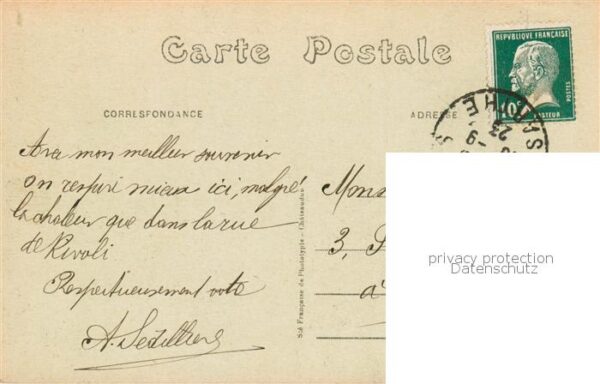 Carte Postale
RÉPUBLIQUE FRANÇAISE
10c
POSTES
PASTEUR
CORRESPONDANCE
ADRESSE
Avec mon meilleur souvenir
on respire mieux ici, malgré
la chaleur que dans la rue
de Rivoli
Respectueusement vôtre
A.
Mons
3,
a
Sté Française de Phototypie - Châteaudun
privacy protection
Datenschutz